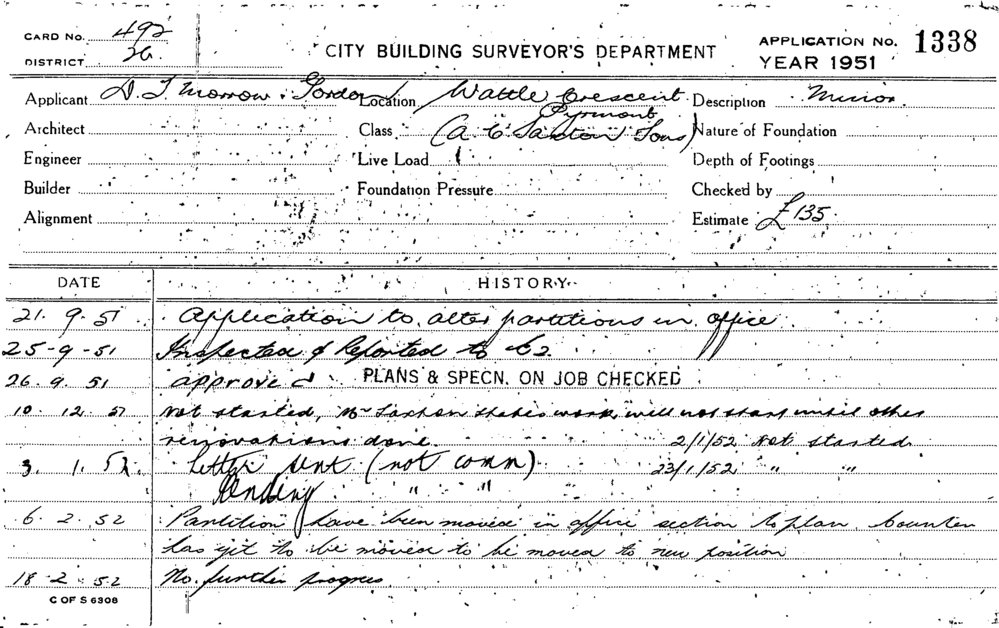 CARD No. 492
DISTRICT 26
CITY BUILDING SURVEYOR'S DEPARTMENT
APPLICATION No. 1338
YEAR 1951
Applicant D. T. Morrow & Gordon Location Wattle Crescent Pyrmont Description Minor.
Architect Class (A. C. Saxton & Sons) Nature of Foundation
Engineer Live Load Depth of Footings
Builder Foundation Pressure Checked by
Alignment Estimate £135.
DATE HISTORY
21. 9. 51 Application to alter partitions in office
25-9-51 Inspected & Reported to
26. 9. 51 approved PLANS & SPECN. ON JOB CHECKED
10. 12. 51 Not started, Mr Saxton states work will not start until other
renovations done. 2/1/52 Not started
3. 1. 52. Letter sent (not comn) 23/1/52 " "
Pending " "
6. 2. 52 Partition have been moved in office section to plan. Counter
has yet to be moved to be moved to new position
18-2-52 No further progress
C OF S 6308